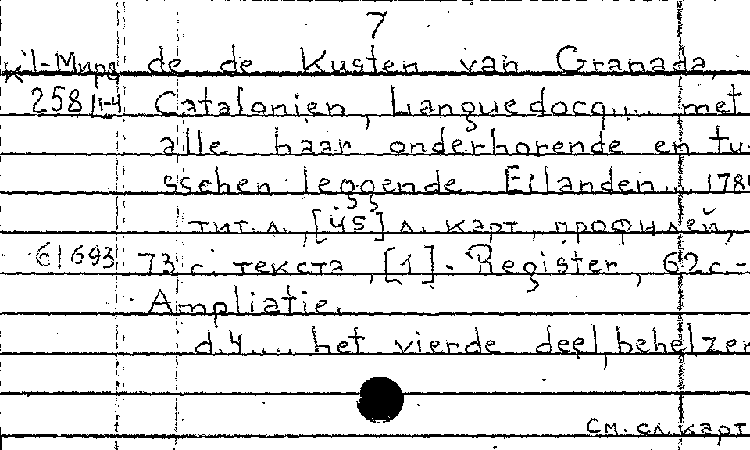 7
К'1-Мира de de Kusten van Granada,
258/1-4 Catalonien, Languedocq... met
alle haar onderhorende en tu-
sschen leggende Eilanden... 178
тит.л., [45] л. карт, профилей,
61693 73 с. текста, [1]. Register, 62 с.-
Ampliatie.
d.4.... het vierde deel, behelzen
См. сл. карт